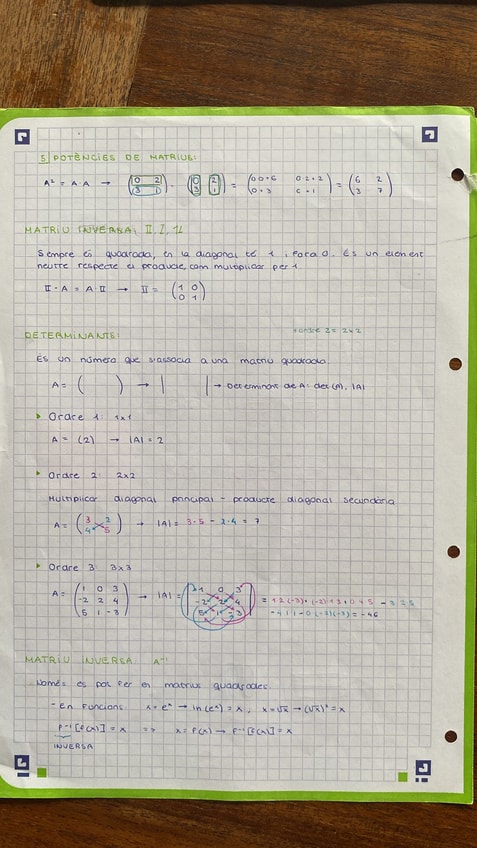 5 POTÈNCIES DE MATRIUS:
A² = A·A → (0 2 / 3 1) · (0 2 / 3 1) = (0·0+6 0·2+2 / 0+3 6+1) = (6 2 / 3 7)
MATRIU INVERSA: II, I, I2
Sempre és quadrada, en la diagonal té 1 i fora 0. És un element
neutre respecte el producte, com multiplicar per 1.
II · A = A · II → II = (1 0 / 0 1)
DETERMINANTS:
ordre 2 = 2x2
És un número que s'associa a una matriu quadrada.
A = ( ) → | | → Determinant de A: det(A), |A|
▸ Ordre 1: 1x1
A = (2) → |A| = 2
▸ Ordre 2: 2x2
Multiplicar diagonal principal - producte diagonal secundària
A = (3 2 / 4 5) → |A| = 3·5 - 2·4 = 7
▸ Ordre 3: 3x3
A = (1 0 3 / -2 2 4 / 5 1 -3) → |A| = 1 0 3 / -2 2 4 / 5 1 -3 = 1·2·(-3)+(-2)·1·3+0+5 - 3·2·5
-4·1·1-0·(-2)(-3) = -46
MATRIU INVERSA: A⁻¹
Només es pot fer en matrius quadrades.
- en funcions: x = eˣ → ln(eˣ) = x, x = √x → (√x)² = x
f⁻¹[f(x)] = x => x = f(x) → f⁻¹[f(x)] = x
INVERSA